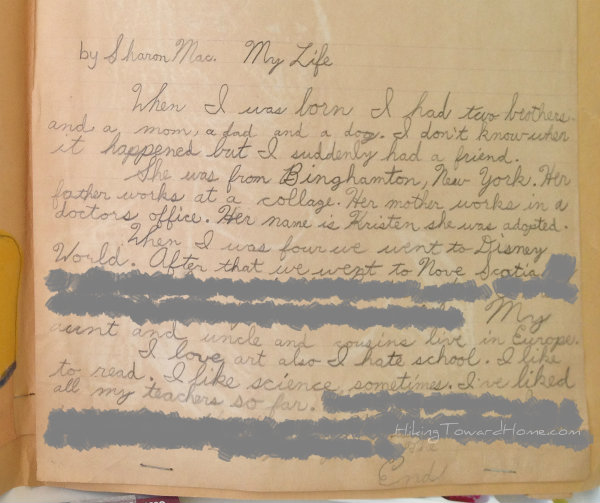 by Sharon Mac. My Life
When I was born I had two brothers
and a mom, a dad and a dog. I don't know when
it happened but I suddenly had a friend.
She was from Binghamton, New York. Her
father works at a collage. Her mother works in a
doctors office. Her name is Kristen she was adopted.
When I was four we went to Disney
World. After that we went to Nove Scatia
My
aunt and uncle and cousins live in Europe.
I love art also I hate school. I like
to read. I like science sometimes. I've liked
all my teachers so far.
HikingTowardHome.com
The
End